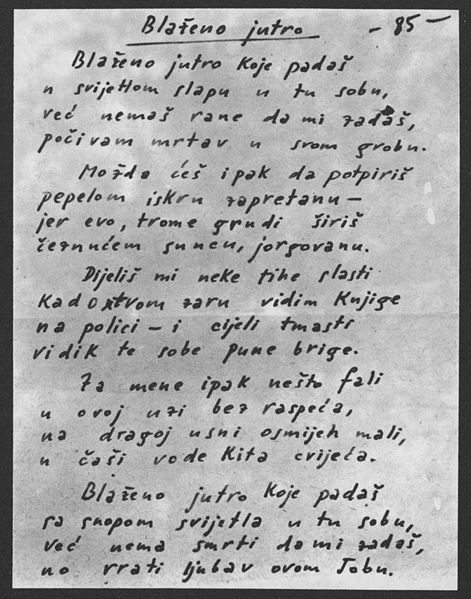 Blaženo jutro – 85 –
Blaženo jutro koje padaš
u svijetlom slapu u tu sobu,
već nemaš rane da mi zadaš,
počivam mrtav u svom grobu.
Možda ćeš ipak da potpiriš
pepelom iskru zapretanu –
jer evo, trome grudi širiš
čeznućem suncu, jorgovanu.
Dijeliš mi neke tihe slasti
kad otvom zaru vidim knjige
na polici – i cijeli tmasti
vidik te sobe pune brige.
Za mene ipak nešto fali
u ovoj uzi bez raspeća,
na dragoj usni osmijeh mali,
u čaši vode kita cvijeća.
Blaženo jutro koje padaš
sa snopom svijetla u tu sobu,
već nema smrti da mi zadaš,
no vrati ljubav ovom Jobu.